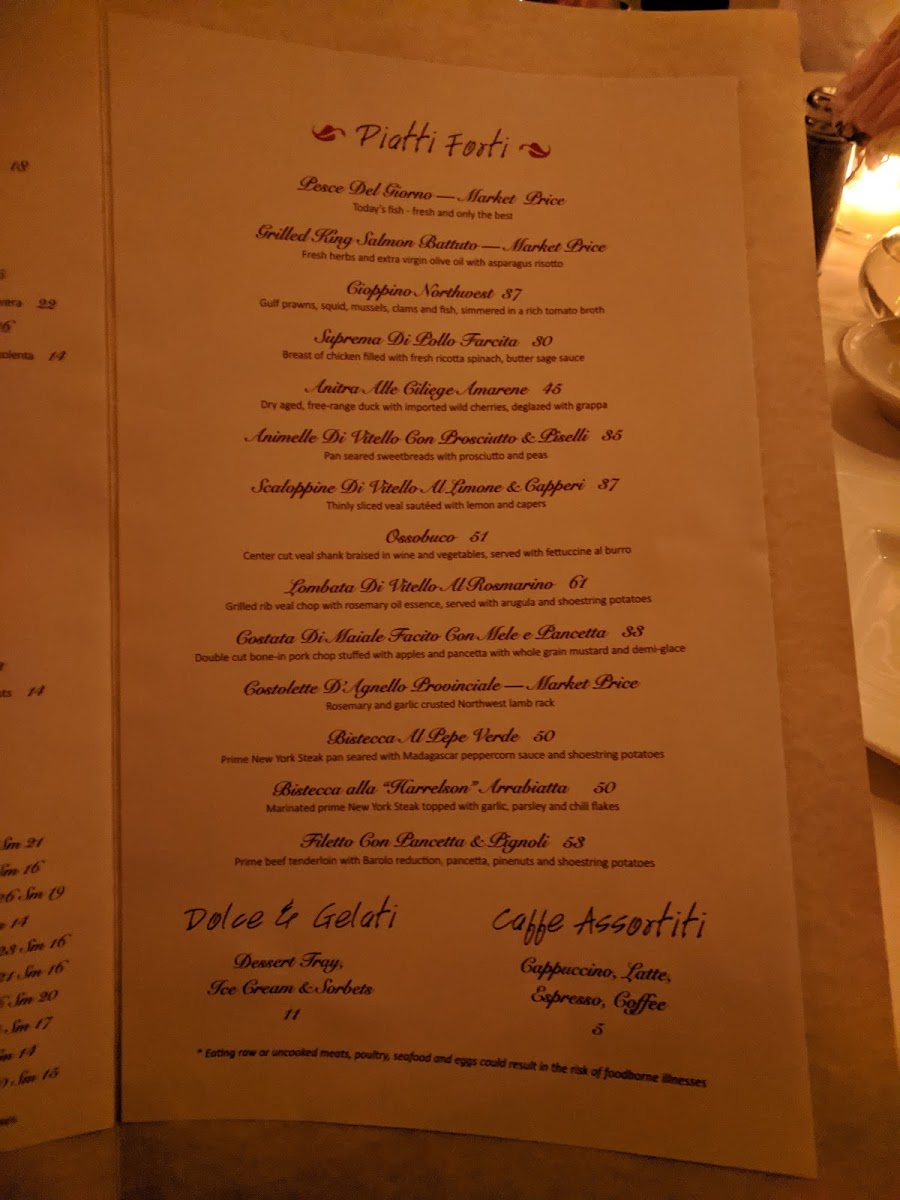 18
22
14
14
Sm 21
Sm 16
Sm 19
14
Sm 16
21 Sm 16
Sm 20
Sm 17
14
Sm 15
Piatti Forti
Pesce Del Giorno — Market Price
Today's fish - fresh and only the best
Grilled King Salmon Battuto — Market Price
Fresh herbs and extra virgin olive oil with asparagus risotto
Cioppino Northwest 37
Gulf prawns, squid, mussels, clams and fish, simmered in a rich tomato broth
Suprema Di Pollo Farcita 30
Breast of chicken filled with fresh ricotta spinach, butter sage sauce
Anitra Alle Ciliege Amarene 45
Dry aged, free-range duck with imported wild cherries, deglazed with grappa
Animelle Di Vitello Con Prosciutto & Piselli 35
Pan seared sweetbreads with prosciutto and peas
Scaloppine Di Vitello Al Limone & Capperi 37
Thinly sliced veal sautéed with lemon and capers
Ossobuco 51
Center cut veal shank braised in wine and vegetables, served with fettuccine al burro
Lombata Di Vitello Al Rosmarino 61
Grilled rib veal chop with rosemary oil essence, served with arugula and shoestring potatoes
Costata Di Maiale Facito Con Mele e Pancetta 33
Double cut bone-in pork chop stuffed with apples and pancetta with whole grain mustard and demi-glace
Costolette D'Agnello Provinciale — Market Price
Rosemary and garlic crusted Northwest lamb rack
Bistecca Al Pepe Verde 50
Prime New York Steak pan seared with Madagascar peppercorn sauce and shoestring potatoes
Bistecca alla "Harrelson" Arrabiatta 50
Marinated prime New York Steak topped with garlic, parsley and chili flakes
Filetto Con Pancetta & Pignoli 53
Prime beef tenderloin with Barolo reduction, pancetta, pinenuts and shoestring potatoes
Dolce & Gelati
Dessert Tray,
Ice Cream & Sorbets
11
Caffe Assortiti
Cappuccino, Latte,
Espresso, Coffee
5
* Eating raw or uncooked meats, poultry, seafood and eggs could result in the risk of foodborne illnesses